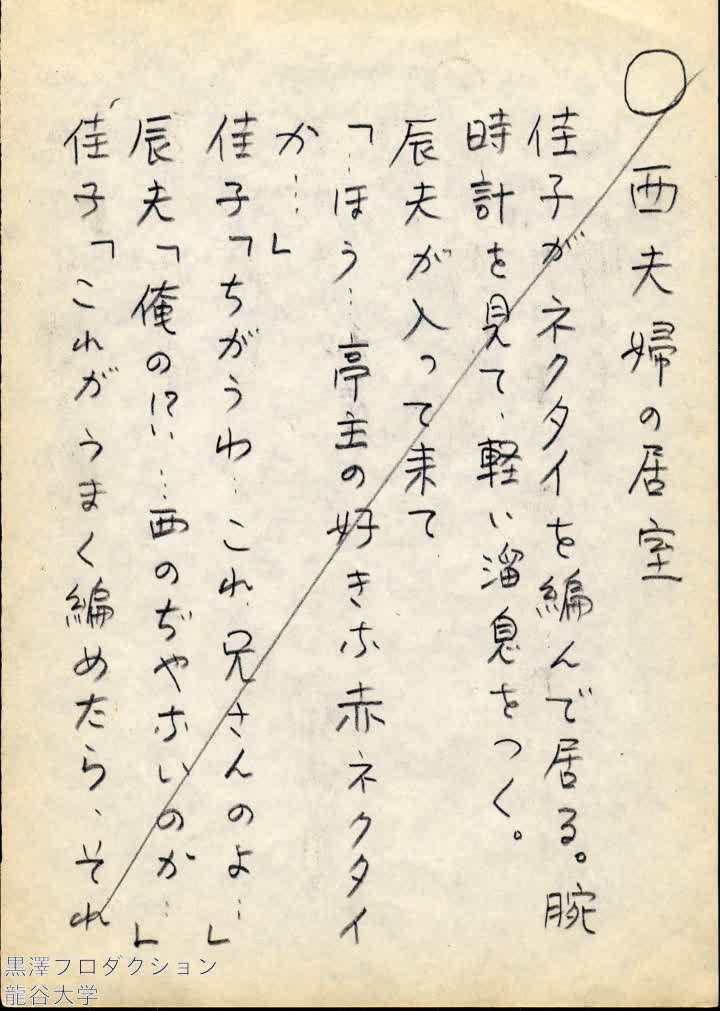 ○ 西夫婦の居室
佳子がネクタイを編んで居る。腕
時計を見て、軽い溜息をつく。
辰夫が入って来て
「…ほう…亭主の好きな赤ネクタイ
か…」
佳子「ちがうわ…これ、兄さんのよ…」
辰夫「俺の!?…西のぢやないのか…」
佳子「これがうまく編めたら、それ
黒澤プロダクション
龍谷大学